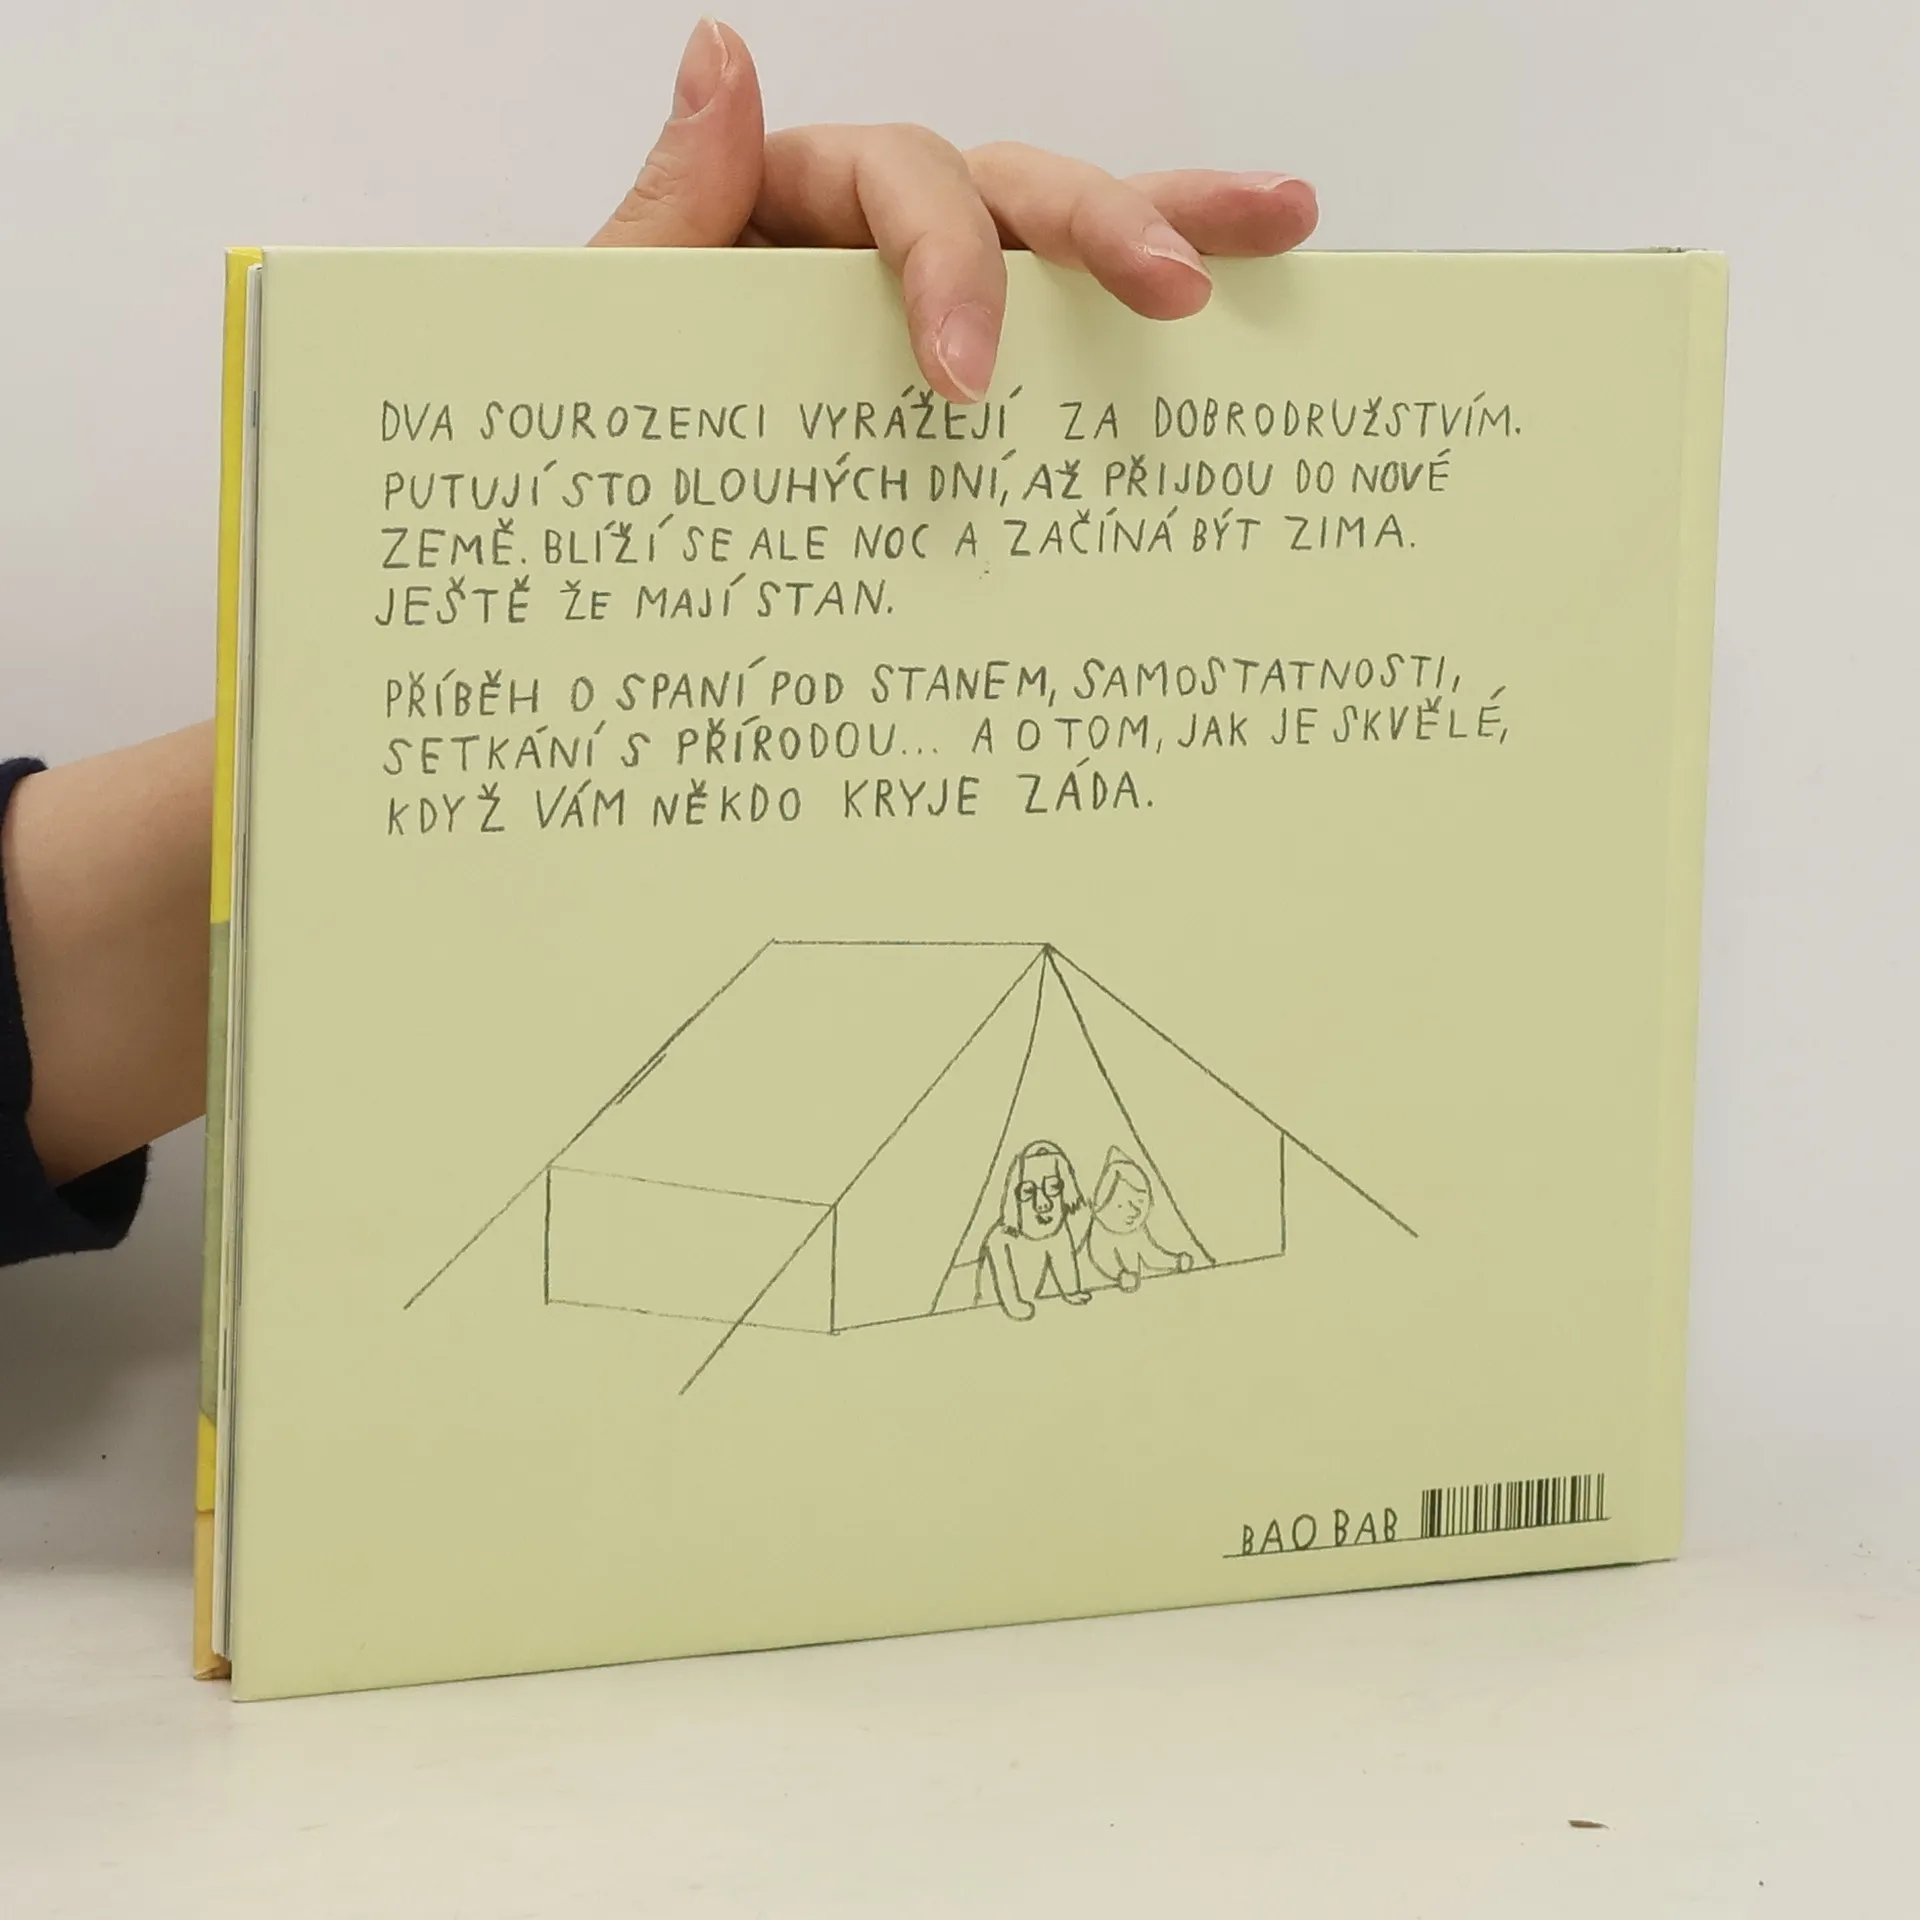 DVA SOUROZENCI VYRÁŽEJÍ ZA DOBRODRUŽSTVÍM.
PUTUJÍ STO DLOUHÝCH DNÍ, AŽ PŘIJDOU DO NOVÉ
ZEMĚ. BLÍŽÍ SE ALE NOC A ZAČÍNÁ BÝT ZIMA.
JEŠTĚ ŽE MAJÍ STAN.
PŘÍBĚH O SPANÍ POD STANEM, SAMOSTATNOSTI,
SETKÁNÍ S PŘÍRODOU... A O TOM, JAK JE SKVĚLÉ,
KDYŽ VÁM NĚKDO KRYJE ZÁDA.
BAOBAB